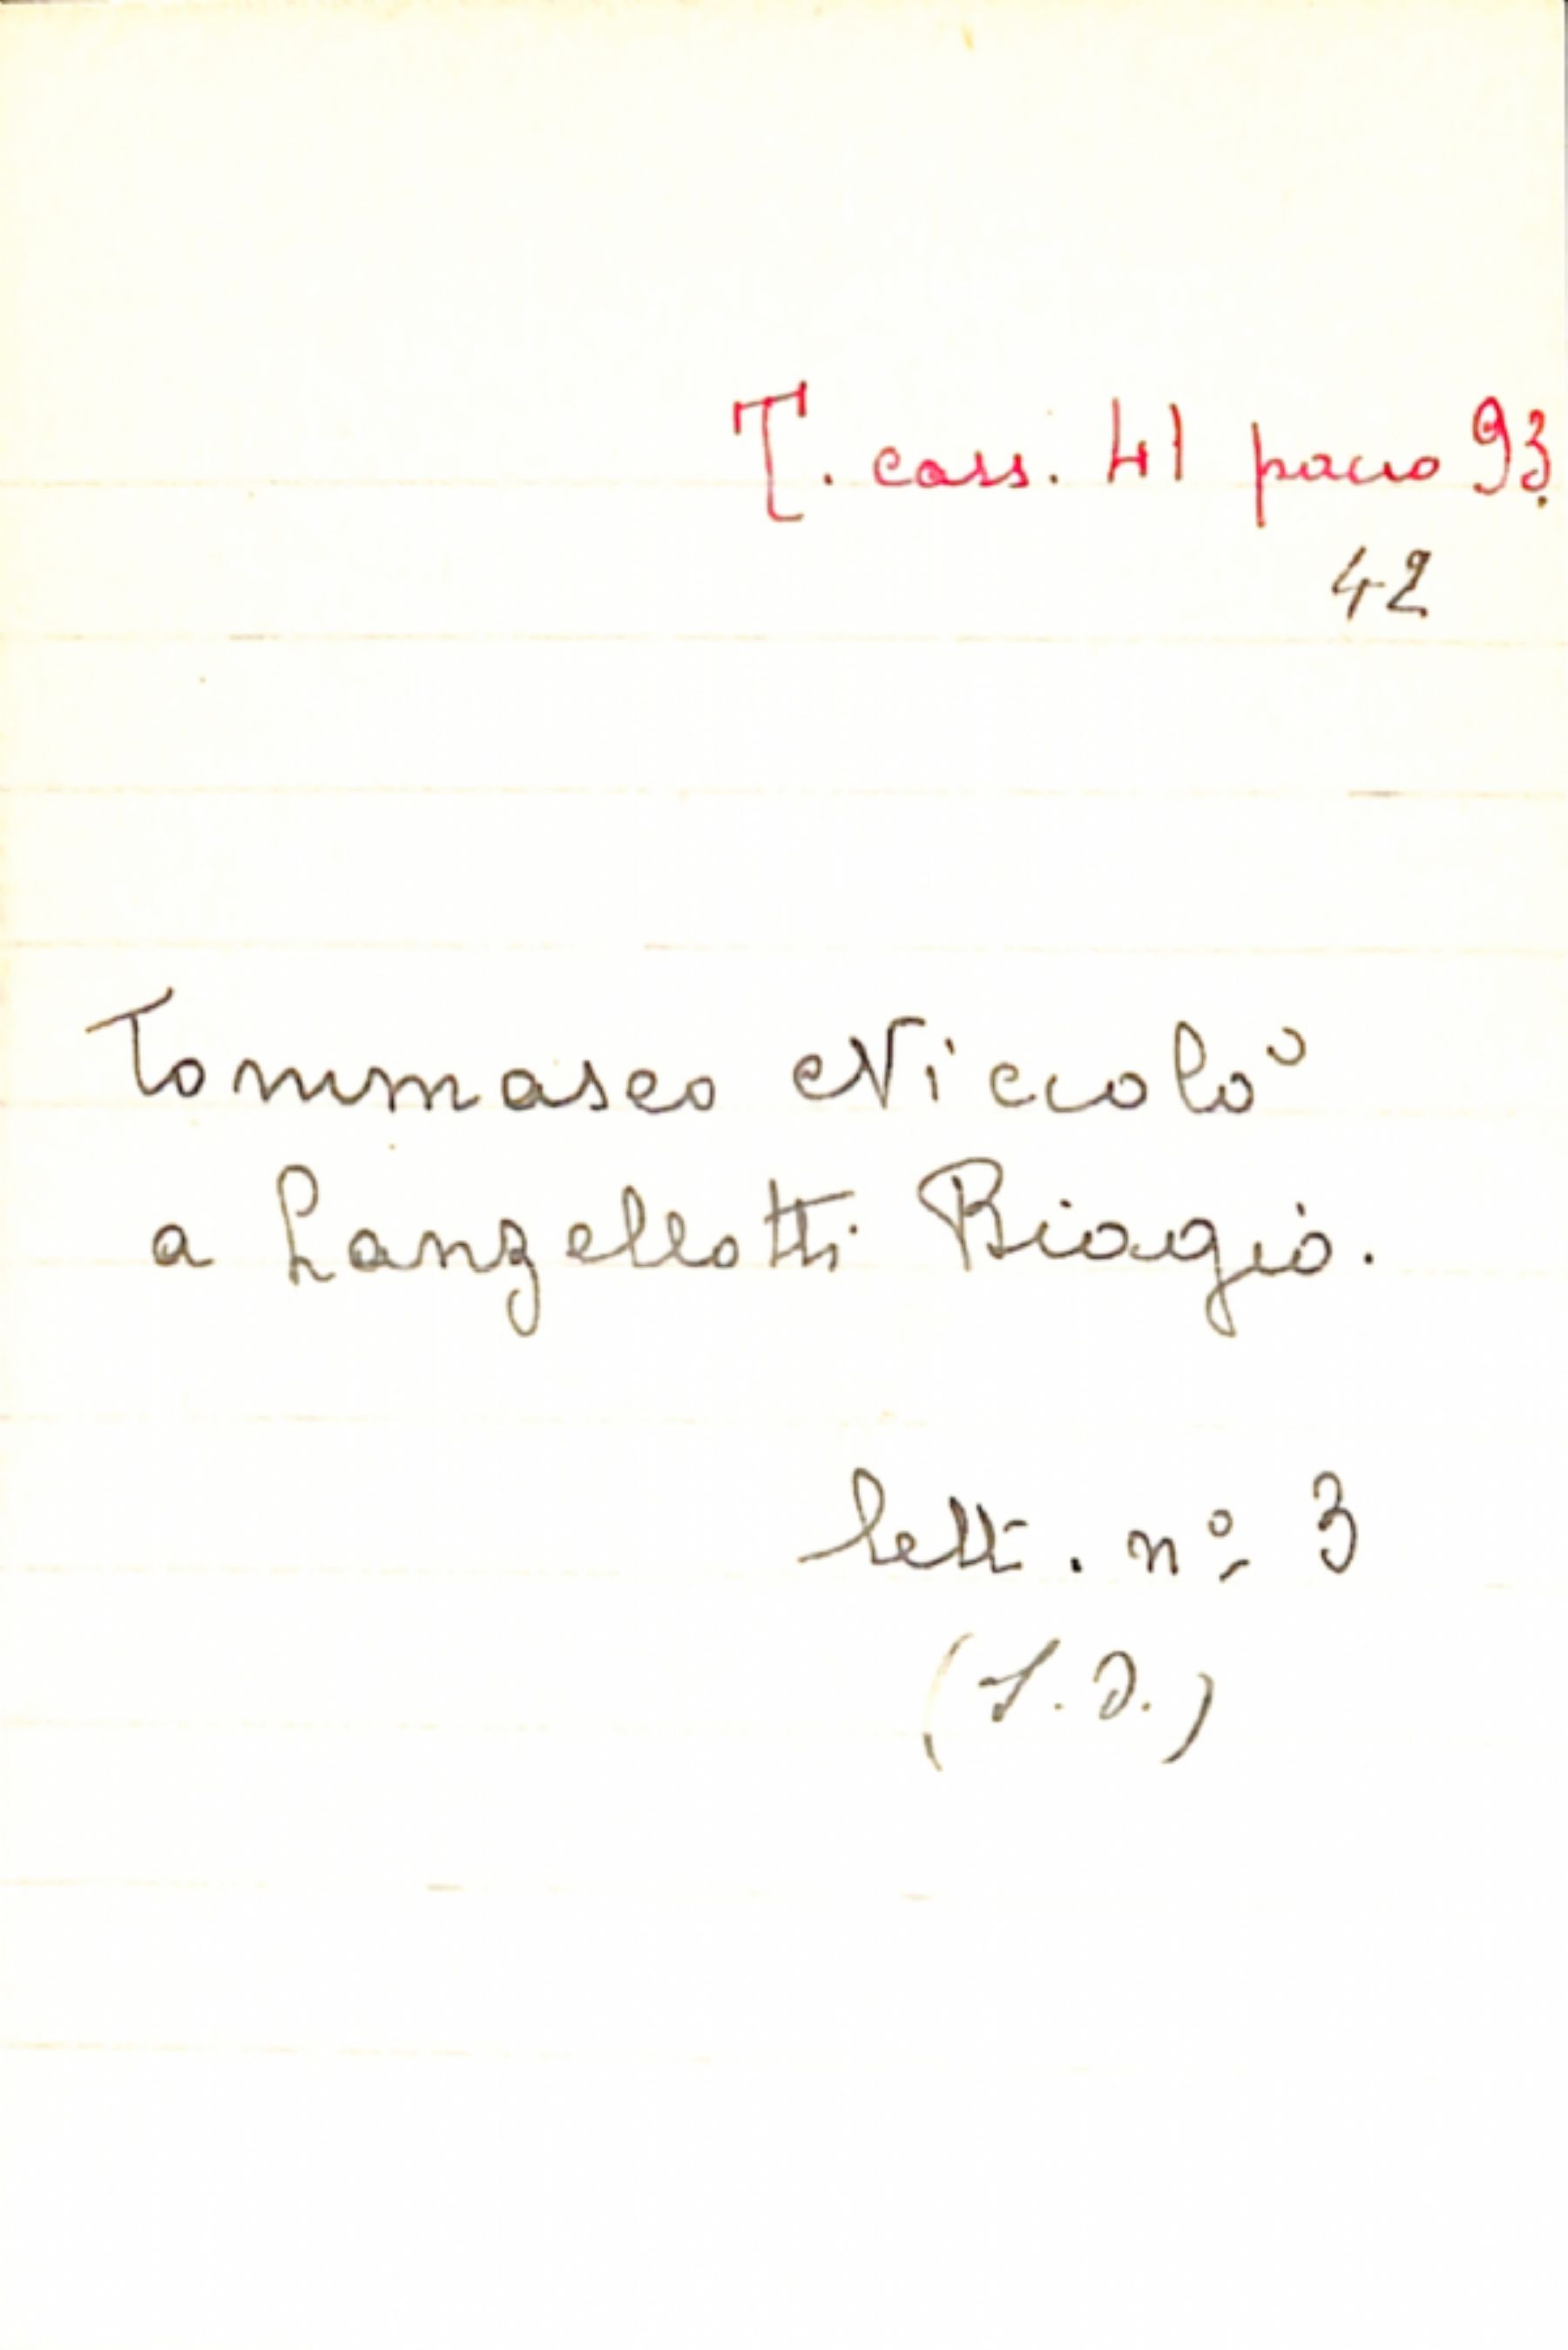 T. cass. 41 pacco 93.
42
Tommaseo Niccolò
a Lanzellotti Biagio.
lett. nº 3
(S. D.)